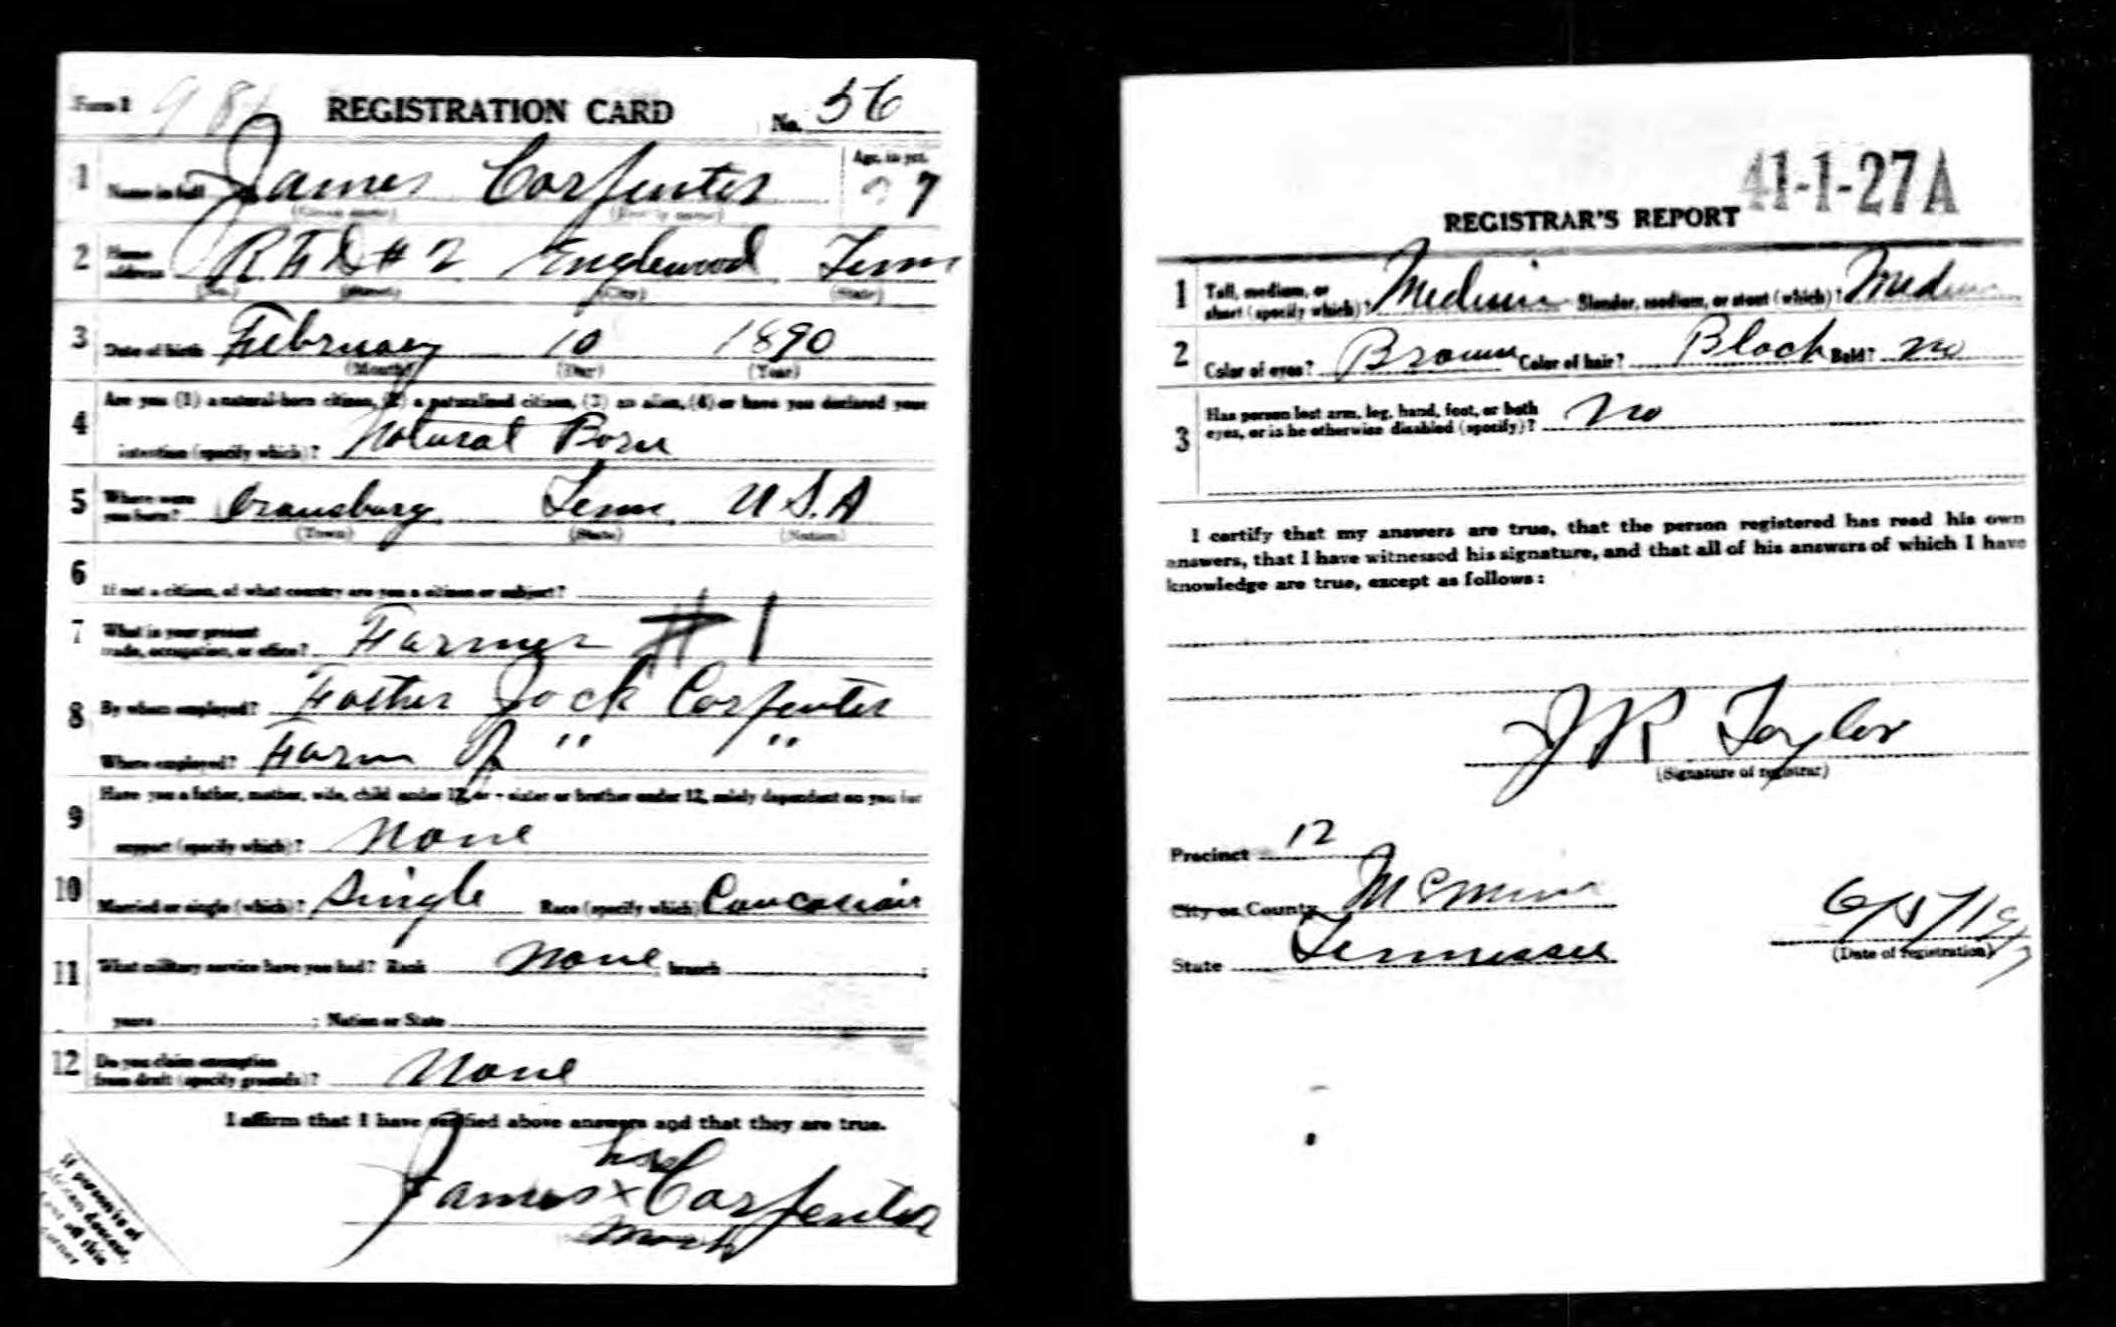 Form 1
REGISTRATION CARD No. 56
1 Name in full James Carpenter Age, in yrs. 27
(Given name) (Family name)
2 Home address R.F.D #2 Englewood Tenn
(No.) (Street) (City) (State)
3 Date of birth February 10 1890
(Month) (Day) (Year)
4 Are you (1) a natural-born citizen, (2) a naturalized citizen, (3) an alien, (4) or have you declared your
intention (specify which)? Natural Born
5 Where were you born? Tenn U.S.A
(Town) (State) (Nation)
6 If not a citizen, of what country are you a citizen or subject?
7 What is your present trade, occupation, or office? Farmer #1
8 By whom employed? Father Jack Carpenter
Where employed? Farm of " "
9 Have you a father, mother, wife, child under 12, or a sister or brother under 12, solely dependent on you for
support (specify which)? None
10 Married or single (which)? Single Race (specify which)? Caucasian
11 What military service have you had? Rank None branch ;
years ; Nation or State
12 Do you claim exemption from draft (specify grounds)? None
I affirm that I have verified above answers and that they are true.
his
James x Carpenter
Mark
If person is of
African descent,
tear off this
corner
41-1-27A
REGISTRAR'S REPORT
1 Tall, medium, or short (specify which)? Medium Slender, medium, or stout (which)? Medium
2 Color of eyes? Brown Color of hair? Black Bald? no
3 Has person lost arm, leg, hand, foot, or both eyes, or is he otherwise disabled (specify)? no
I certify that my answers are true, that the person registered has read his own
answers, that I have witnessed his signature, and that all of his answers of which I have
knowledge are true, except as follows:
J R Taylor
(Signature of registrar)
Precinct 12
City or County McMinn
State Tennessee
6/5/17
(Date of registration)